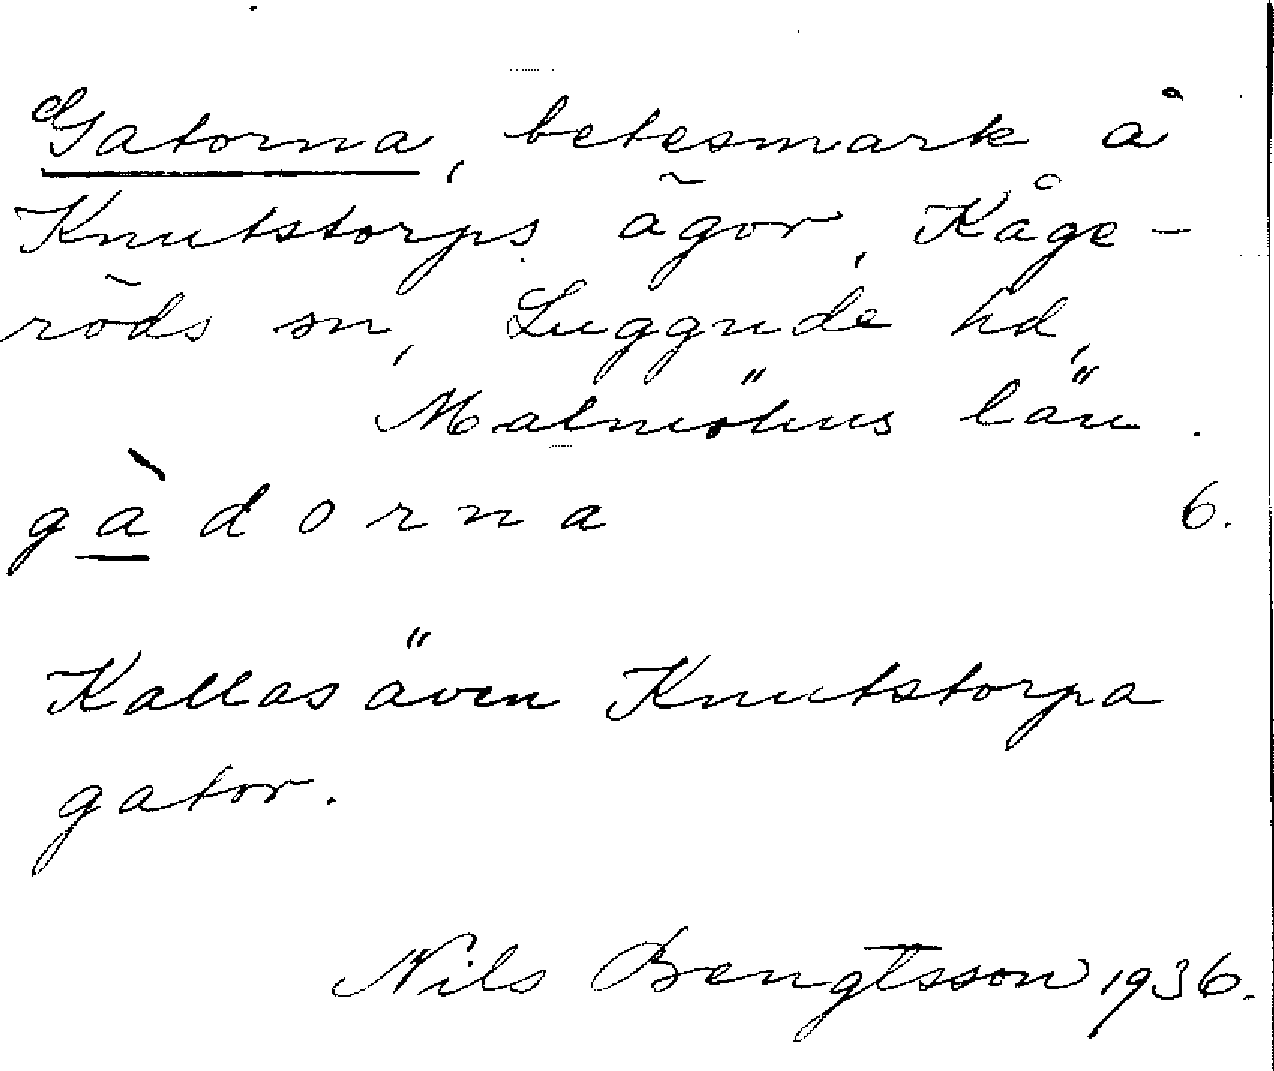 Gatorna, betesmark å
Knutstorps ägor, Kåge-
röds sn, Luggude hd,
Malmöhus län.
gàdorna 6.
Kallas även Knutstorpa
gator.
Nils Bengtsson 1936.